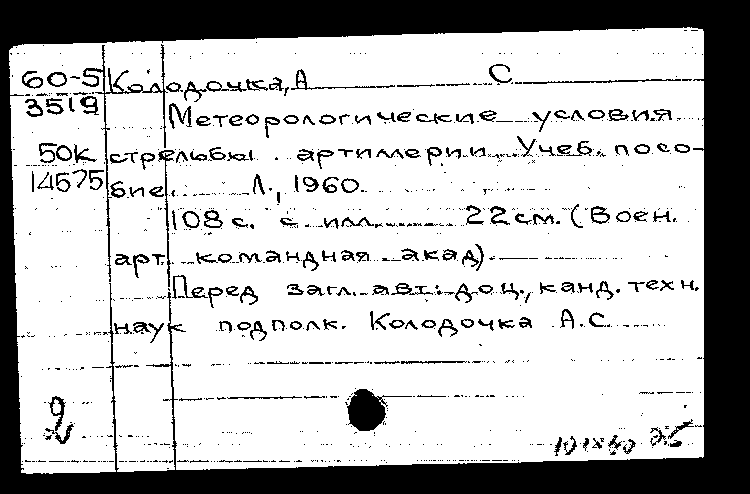 60-5 Колодочка, А С
3519
Метеорологические условия
50к стрельбы артиллерии. Учеб. посо-
14575 бие. Л., 1960
108 с. с илл. 22 см. (Воен.
арт. командная акад).
Перед загл. авт.: доц., канд. техн.
наук подполк. Колодочка А.С
2